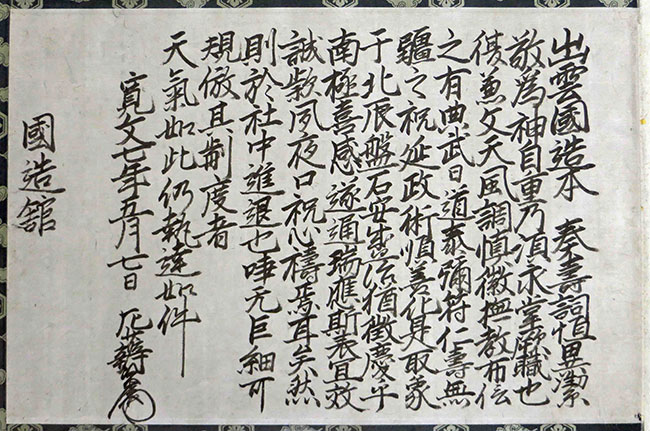 出雲國造本 奏壽詞恒異潔
敬爲神自重乃須永堂厥職也
兼文天風調慎徽撫教布
之有典武日道泰彌符仁壽無
疆之祝延政術順善化是取象
于北辰盤石安治猶徴慶乎
南極喜感遂通瑞應斯表宜效
誠款夙夜口祝心禱焉耳矣然
則於社中進退也唯无巨細可
規倣其制度者
天氣如此仍執達如件
寛文七年五月七日
國造舘